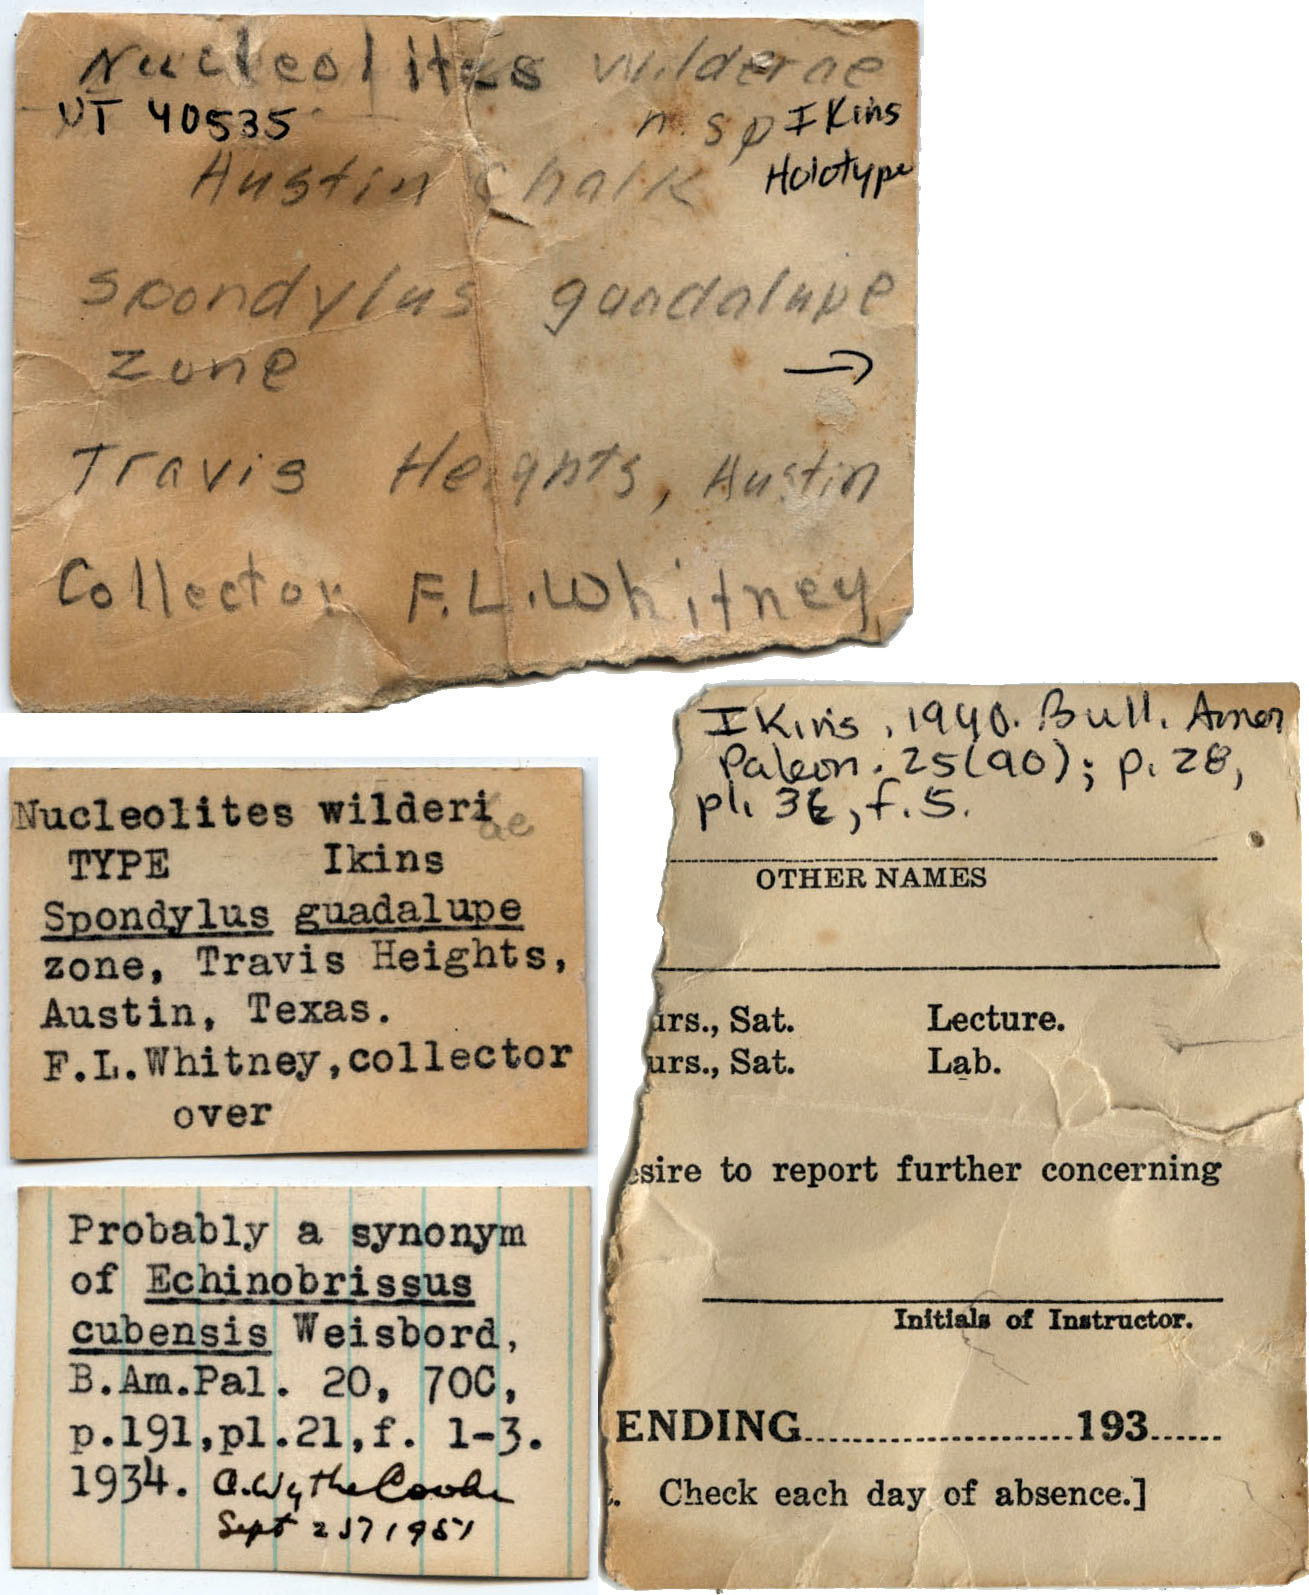 Nucleolites wilderae
UT 40535
n. sp Ikins
Holotype
Austin Chalk
Spondylus guadalupe
zone
→
Travis Heights, Austin
Collector F.L. Whitney
Nucleolites wilderi
ae
TYPE Ikins
Spondylus guadalupe
zone, Travis Heights,
Austin, Texas.
F.L.Whitney,collector
over
Probably a synonym
of Echinobrissus
cubensis Weisbord,
B.Am.Pal. 20, 70C,
p.191,pl.21,f. 1-3.
1934. C. Wythe Cooke
Sept 1951
Ikins, 1940. Bull. Amer
Paleon. 25(90); p. 28,
pl. 3, f.5.
OTHER NAMES
urs., Sat. Lecture.
urs., Sat. Lab.
esire to report further concerning
Initials of Instructor.
ENDING........................193......
. Check each day of absence.]